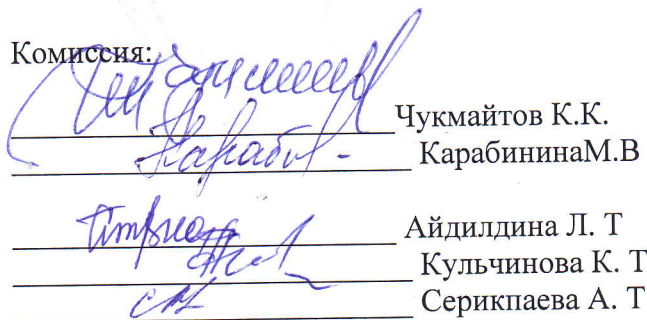 Комиссия:
Чукмайтов К.К.
КарабининаМ.В
Айдилдина Л. Т
Кульчинова К. Т
Серикпаева А. Т